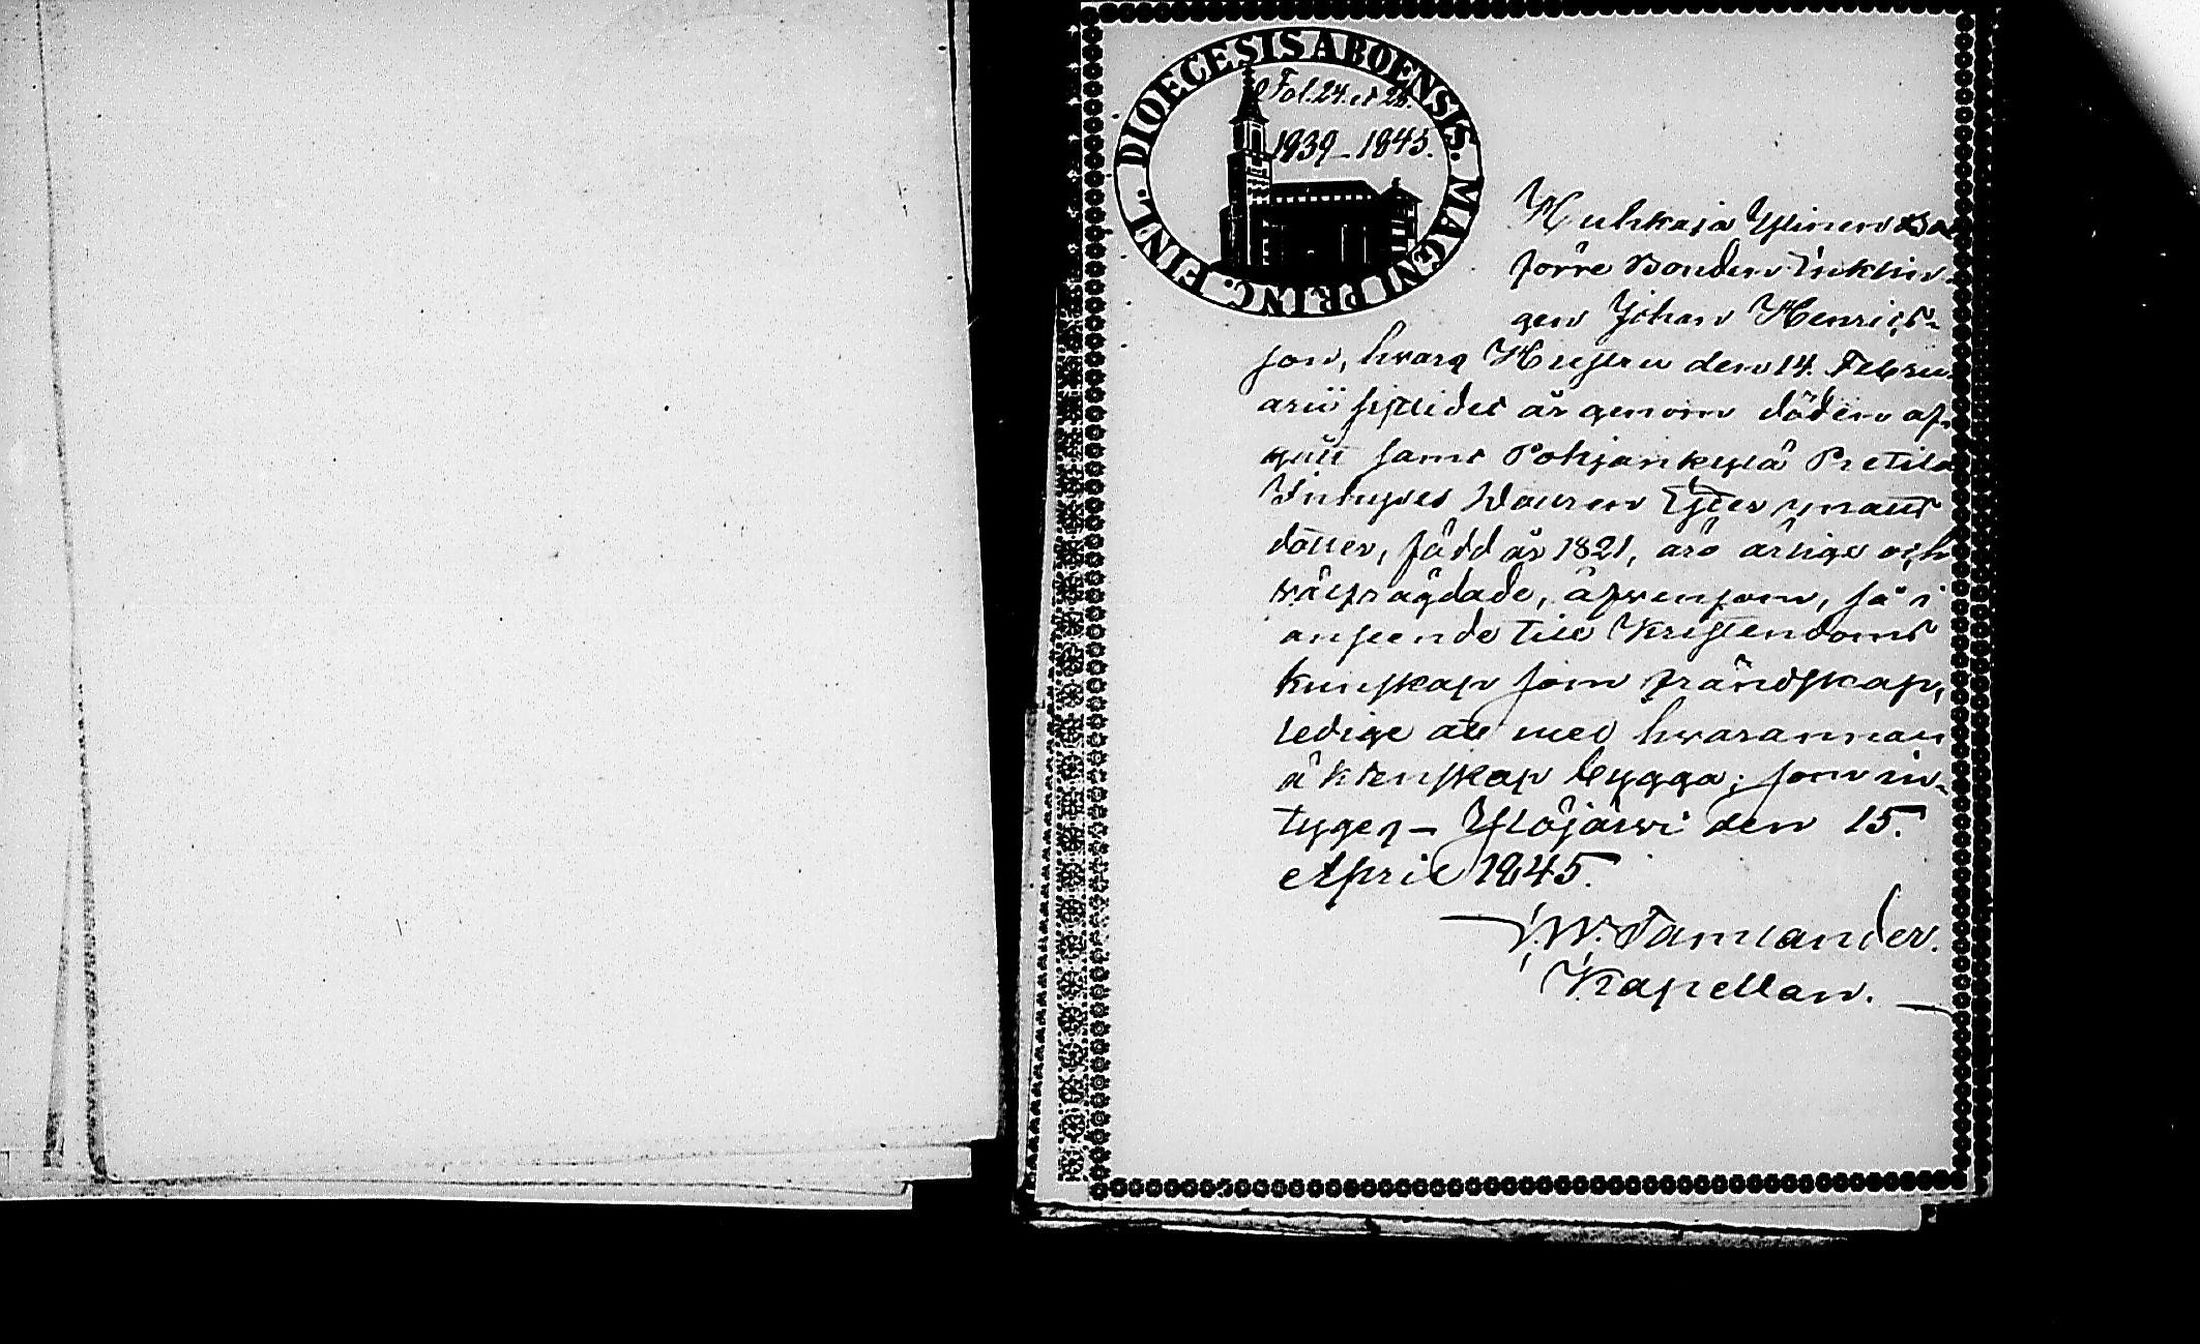 DIOECESIS ABOENSIS. MAGNI PRINC. FINL.
Fol. 24. et 26.
1839–1845.
Huhkaja Ylinen
förre Bonden Enklin-
gen Johan Henrics-
son, hvars Hustru den 14. Febru-
arii sistlidet år genom döden af-
gått samt Pohjankylä Pretila
Inhyses Ester
dotter, född år 1821, äro ärlige och
välfrägdade, äfvensom, så i
anseende till Kristendoms
kunskap som frändskap,
ledige att med hvarannan
äktenskap bygga; som in-
tygas – Ylöjärvi den 15.
April 1845.
J. W. Tamlander.
Kapellan.